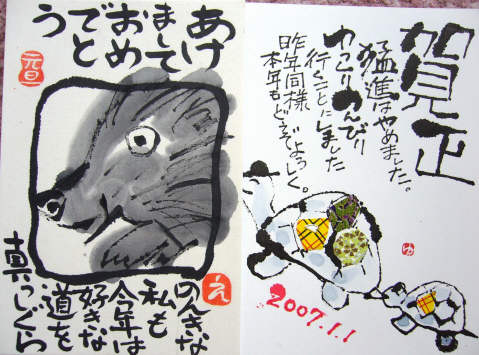 あけ
まして
おめ
でと
う
元旦
のんきな
私も
今年は
好きな
道を
真っしぐら
え
賀正
猛進はやめました。
ゆっくりのんびり
行くことにしました
昨年同様
本年もどうぞよろしく。
ゆ
2007.1.1